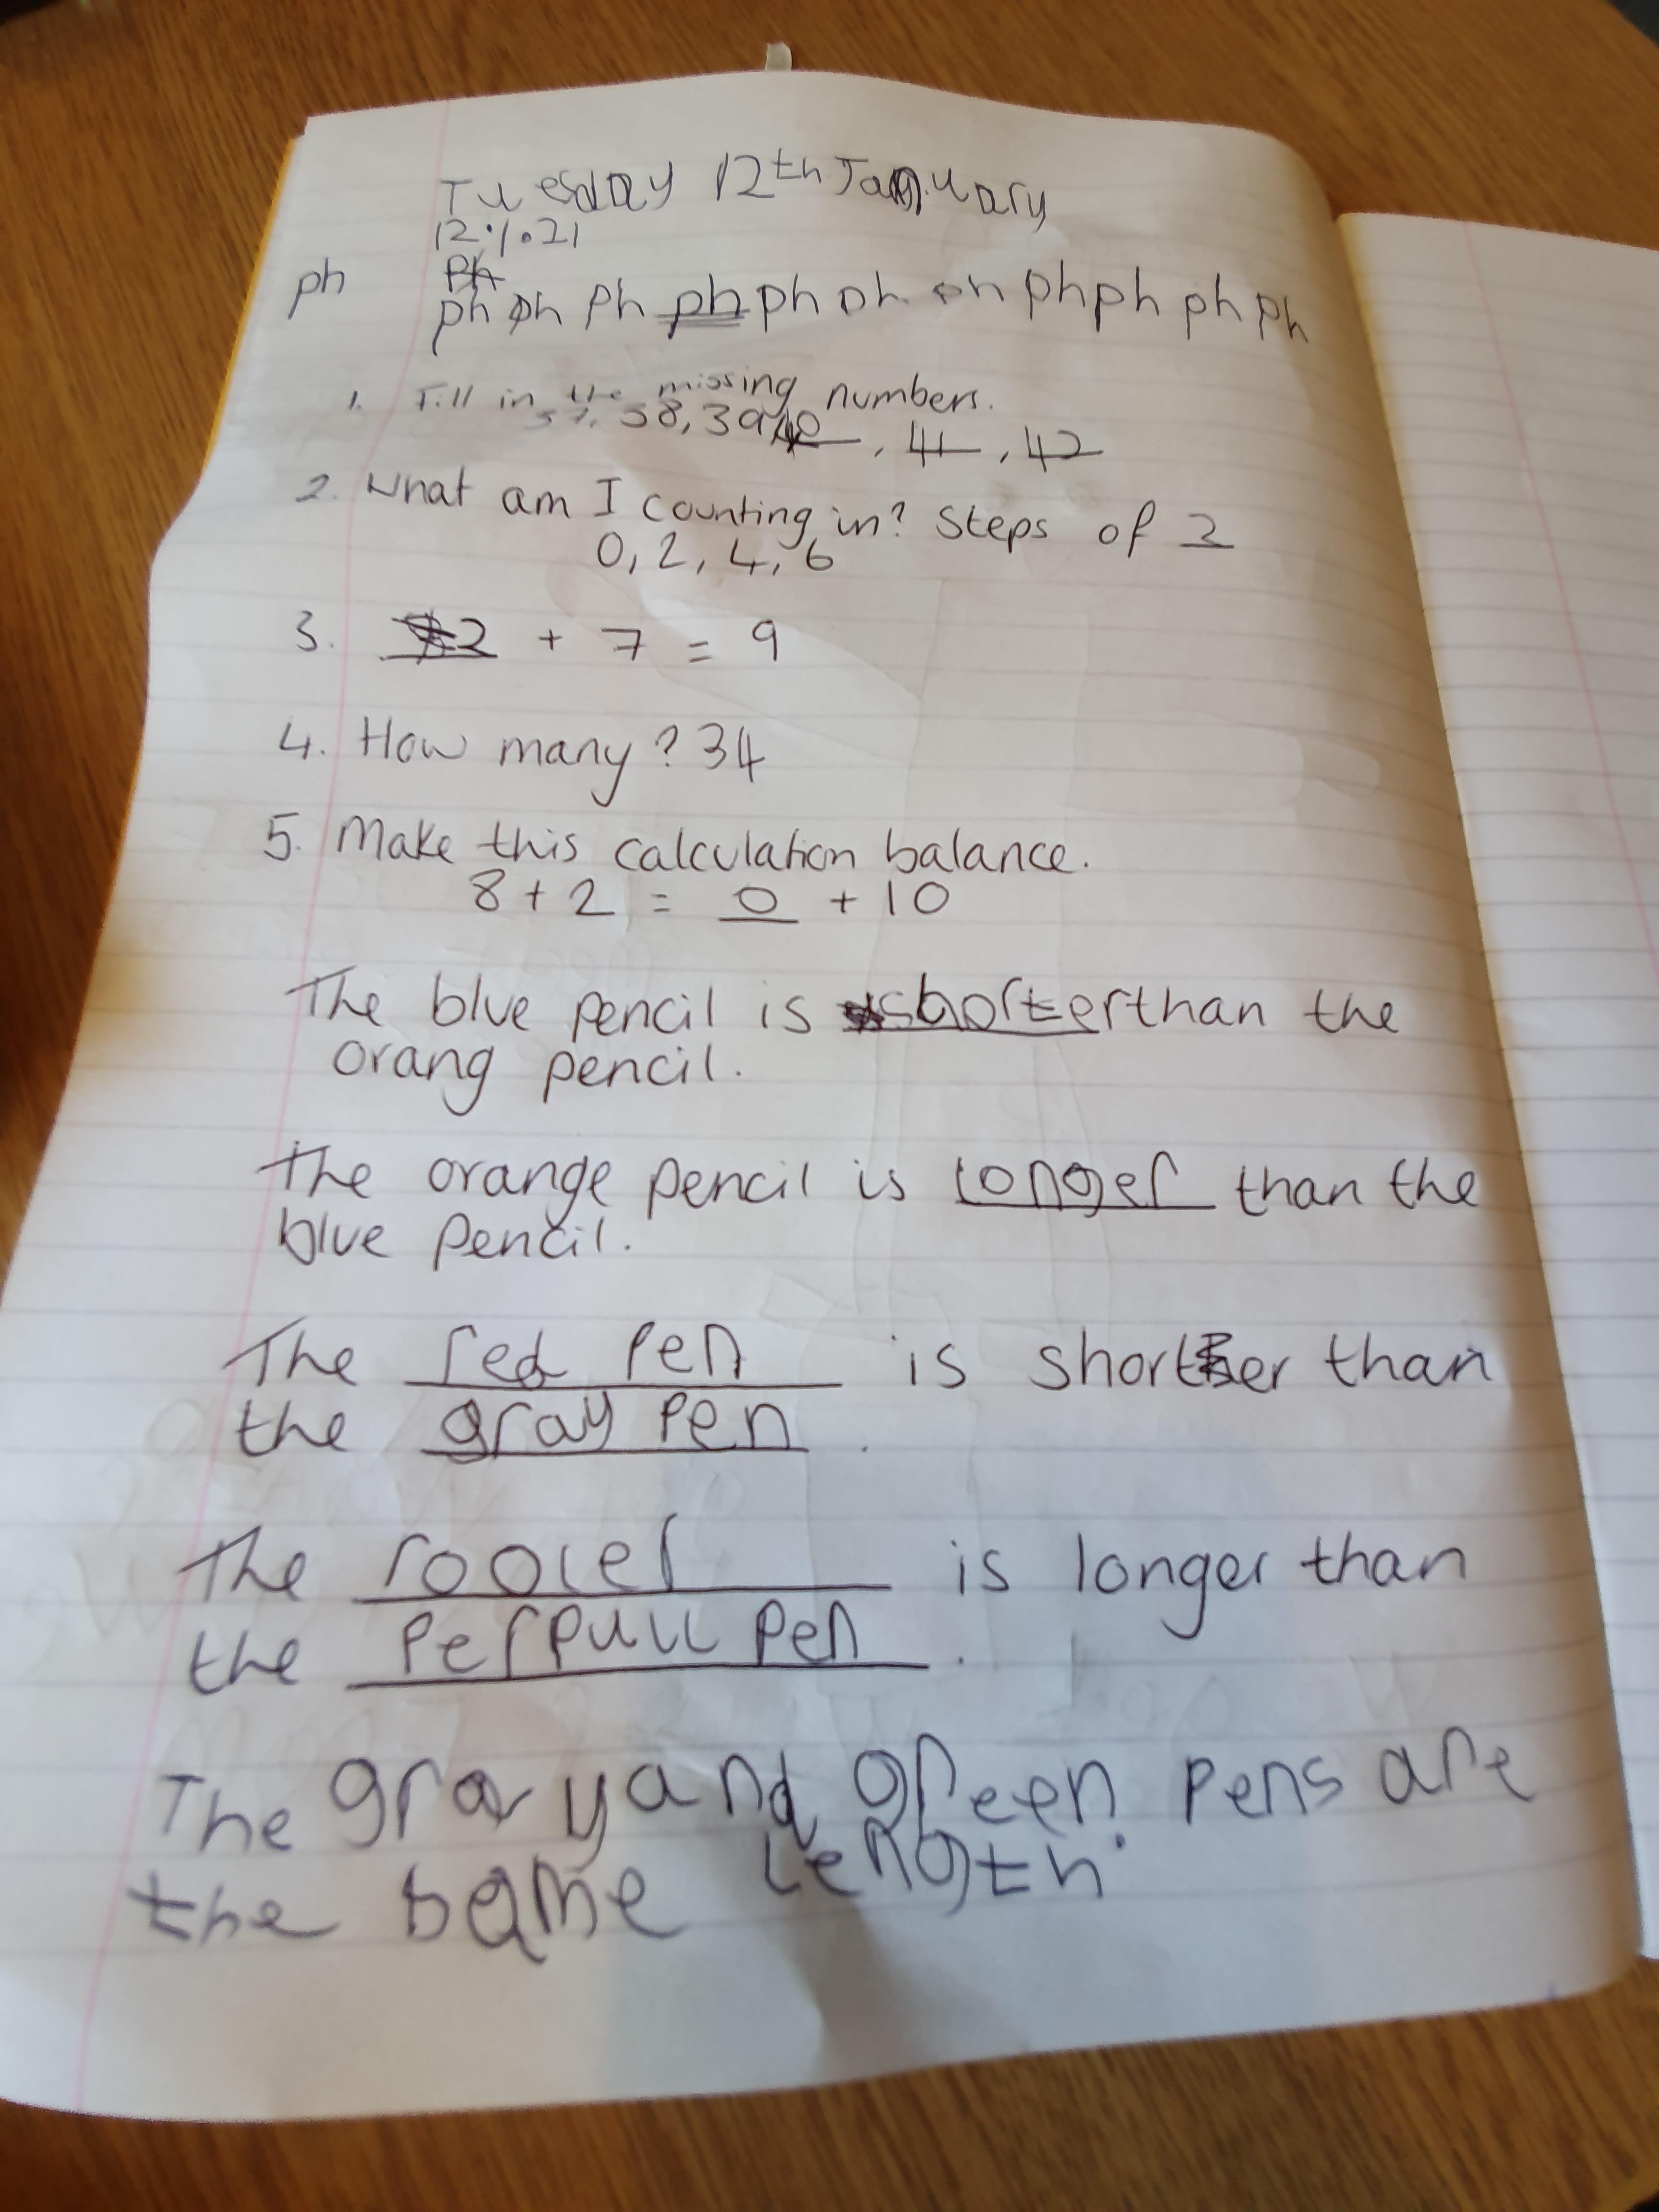 Tuesday 12th January
12.1.21
ph
ph ph ph ph ph ph ph ph ph ph ph
1. Fill in the missing numbers.
37, 38, 39, 40, 41, 42
2. What am I counting in? Steps of 2
0, 2, 4, 6
3. 2 + 7 = 9
4. How many? 34
5. Make this calculation balance.
8 + 2 = 0 + 10
The blue pencil is shorter than the
orang pencil.
The orange pencil is longer than the
blue pencil.
The red pen is shorter than
the gray pen.
The rooler is longer than
the perpull pen.
The gray and green pens are
the same length.